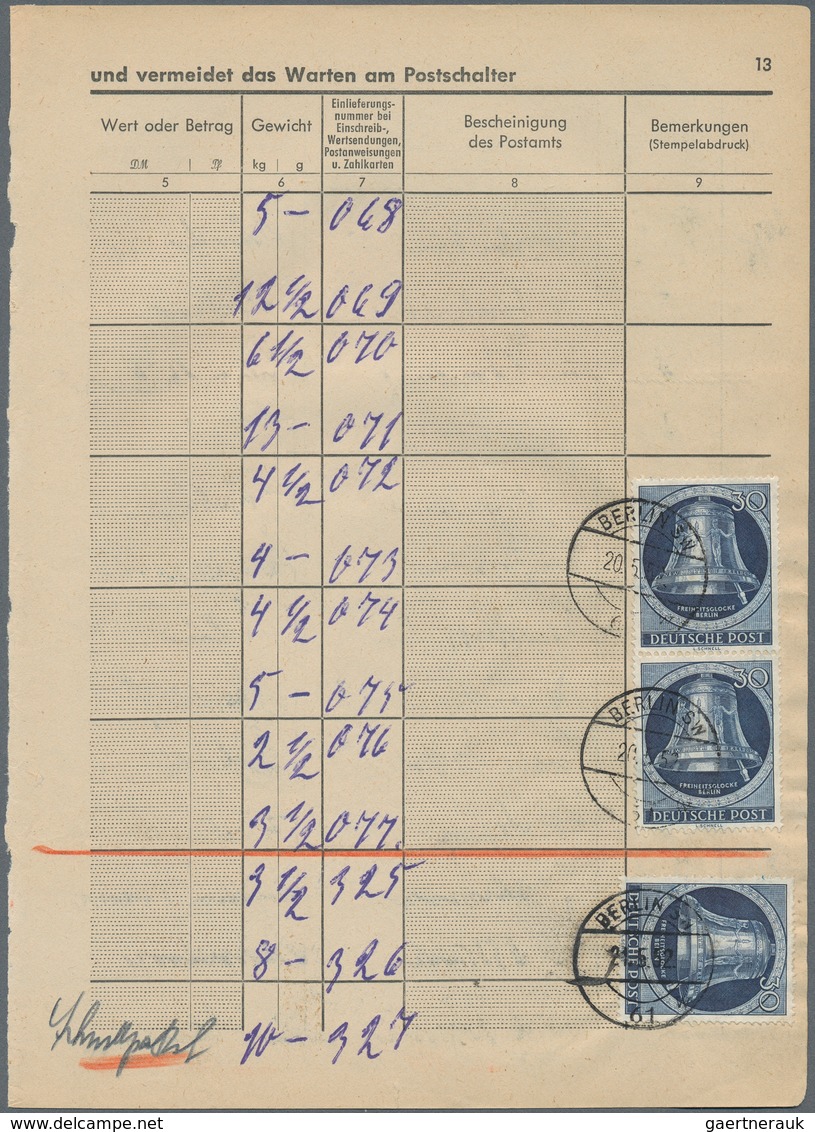 13
und vermeidet das Warten am Postschalter
Wert oder Betrag
DM | Pf
5
Gewicht
kg | g
6
Einlieferungs-
nummer bei
Einschreib-,
Wertsendungen,
Postanweisungen
u. Zahlkarten
7
Bescheinigung
des Postamts
8
Bemerkungen
(Stempelabdruck)
9
5 — 068
12 1/2 069
6 1/2 070
13 — 071
4 1/2 072
4 — 073
4 1/2 074
5 — 075
2 1/2 076
3 1/2 077
3 1/2 325
8 — 326
10 — 327
30
FREIHEITSGLOCKE
BERLIN
DEUTSCHE POST
L.SCHNELL
BERLIN SW
20.5.5
30
FREIHEITSGLOCKE
BERLIN
DEUTSCHE POST
L.SCHNELL
BERLIN SW
20.5.5
30
FREIHEITSGLOCKE
BERLIN
DEUTSCHE POST
BERLIN SW
61
delcampe.net
gaertnerauk